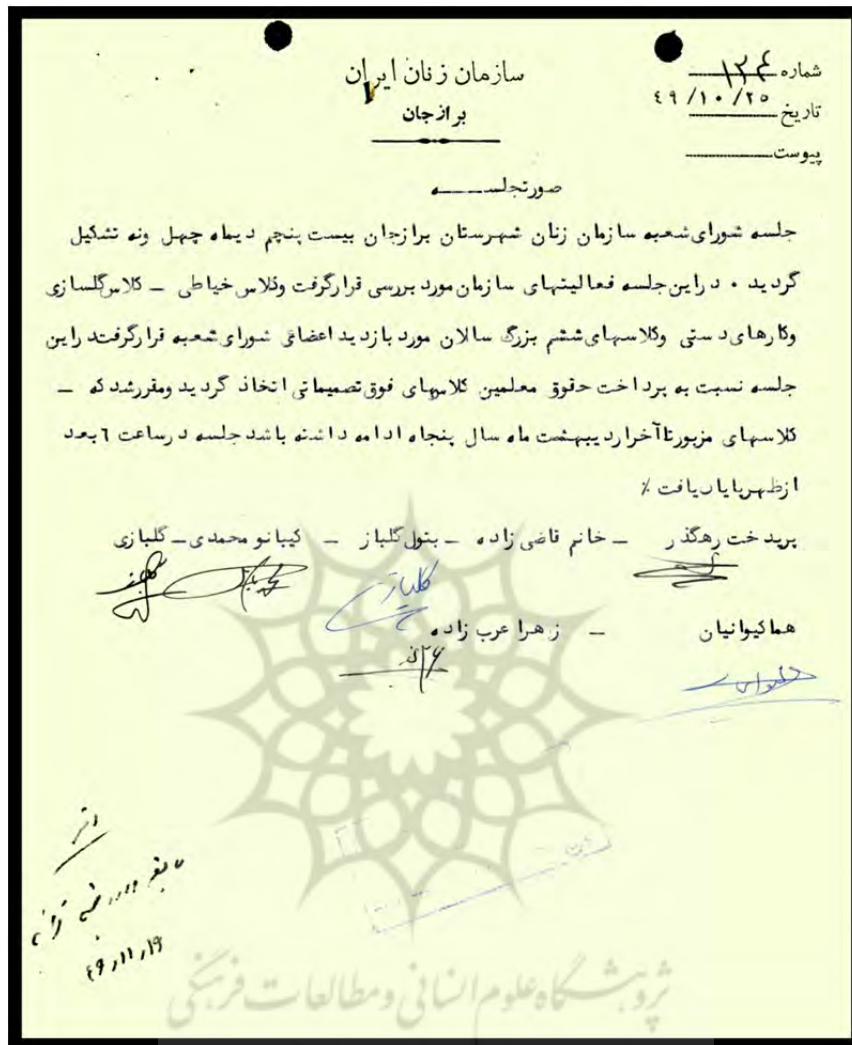 سازمان زنان ایران
برازجان
شماره ۱۳۴
تاریخ ٤٩/١٠/٢٥
پیوست
صورتجلسه
جلسه شورای شعبه سازمان زنان شهرستان برازجان بیست پنجم دیماه چهل ونه تشکیل
گردید . در این جلسه فعالیتهای سازمان مورد بررسی قرارگرفت وکلاس خیاطی – کلاس گلسازی
وکارهای دستی وکلاسهای ششم بزرگ سالان مورد بازدید اعضائ شورای شعبه قرارگرفت دراین
جلسه نسبت به پرداخت حقوق معلمین کلاسهای فوق تصمیماتی اتخاذ گردید ومقررشد که –
کلاسهای مزبورتاآخراردیبهشت ماه سال پنجاه ادامه داشته باشد جلسه درساعت ٦ بعد
ازظهرپایان یافت ٪
پریدخت رهگذر – خانم قاضی زاده – بتول گلباز – کیبانو محمدی – گلبازی
گلباز
هما کیوانیان – زهرا عرب زاده
دفتر
٤٩/١١/١٩
پژوهشگاه علوم انسانی و مطالعات فرهنگی